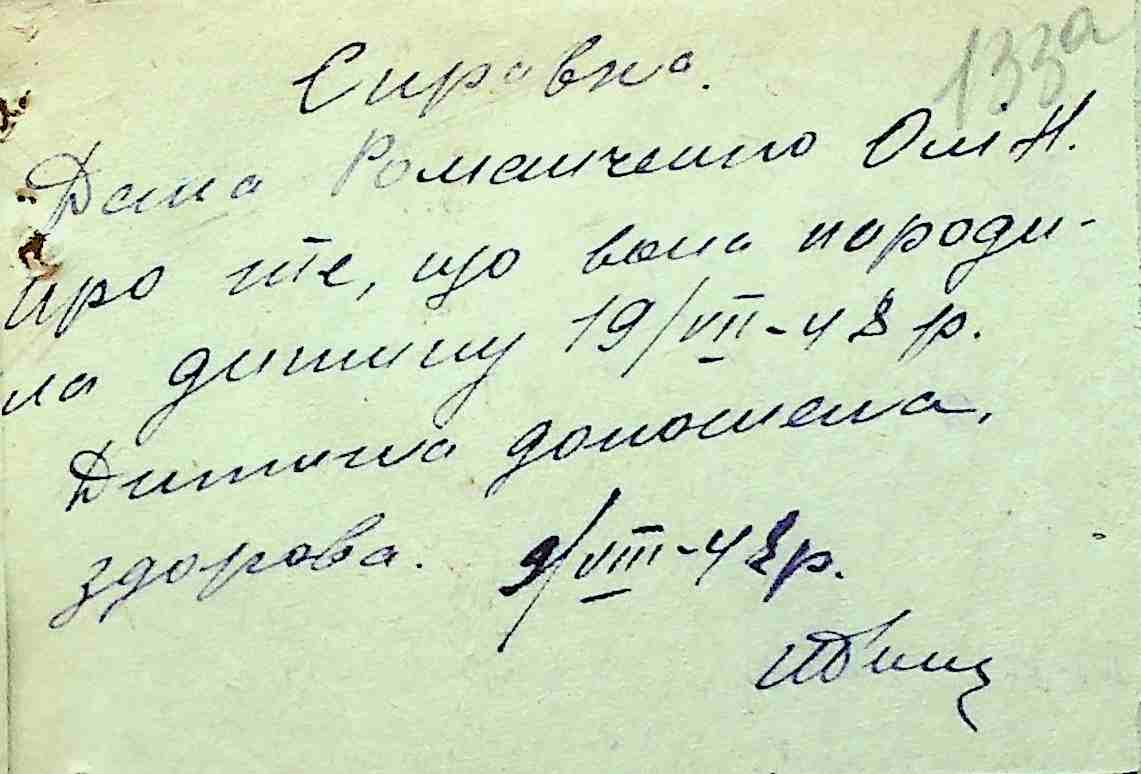 133а
Справка.
Дана Романченко Ол. Н.
про те, що вона народи-
ла дитину 19/VII-48 р.
Дитина доношена,
здорова. 9/VIII-48р.